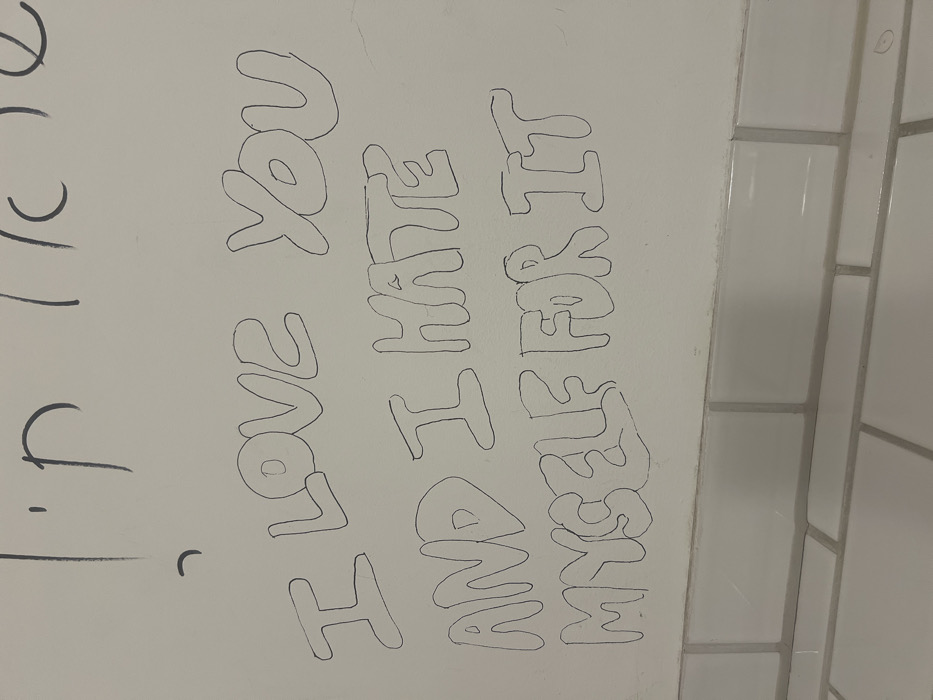 I LOVE YOU
AND I HATE
MYSELF FOR IT